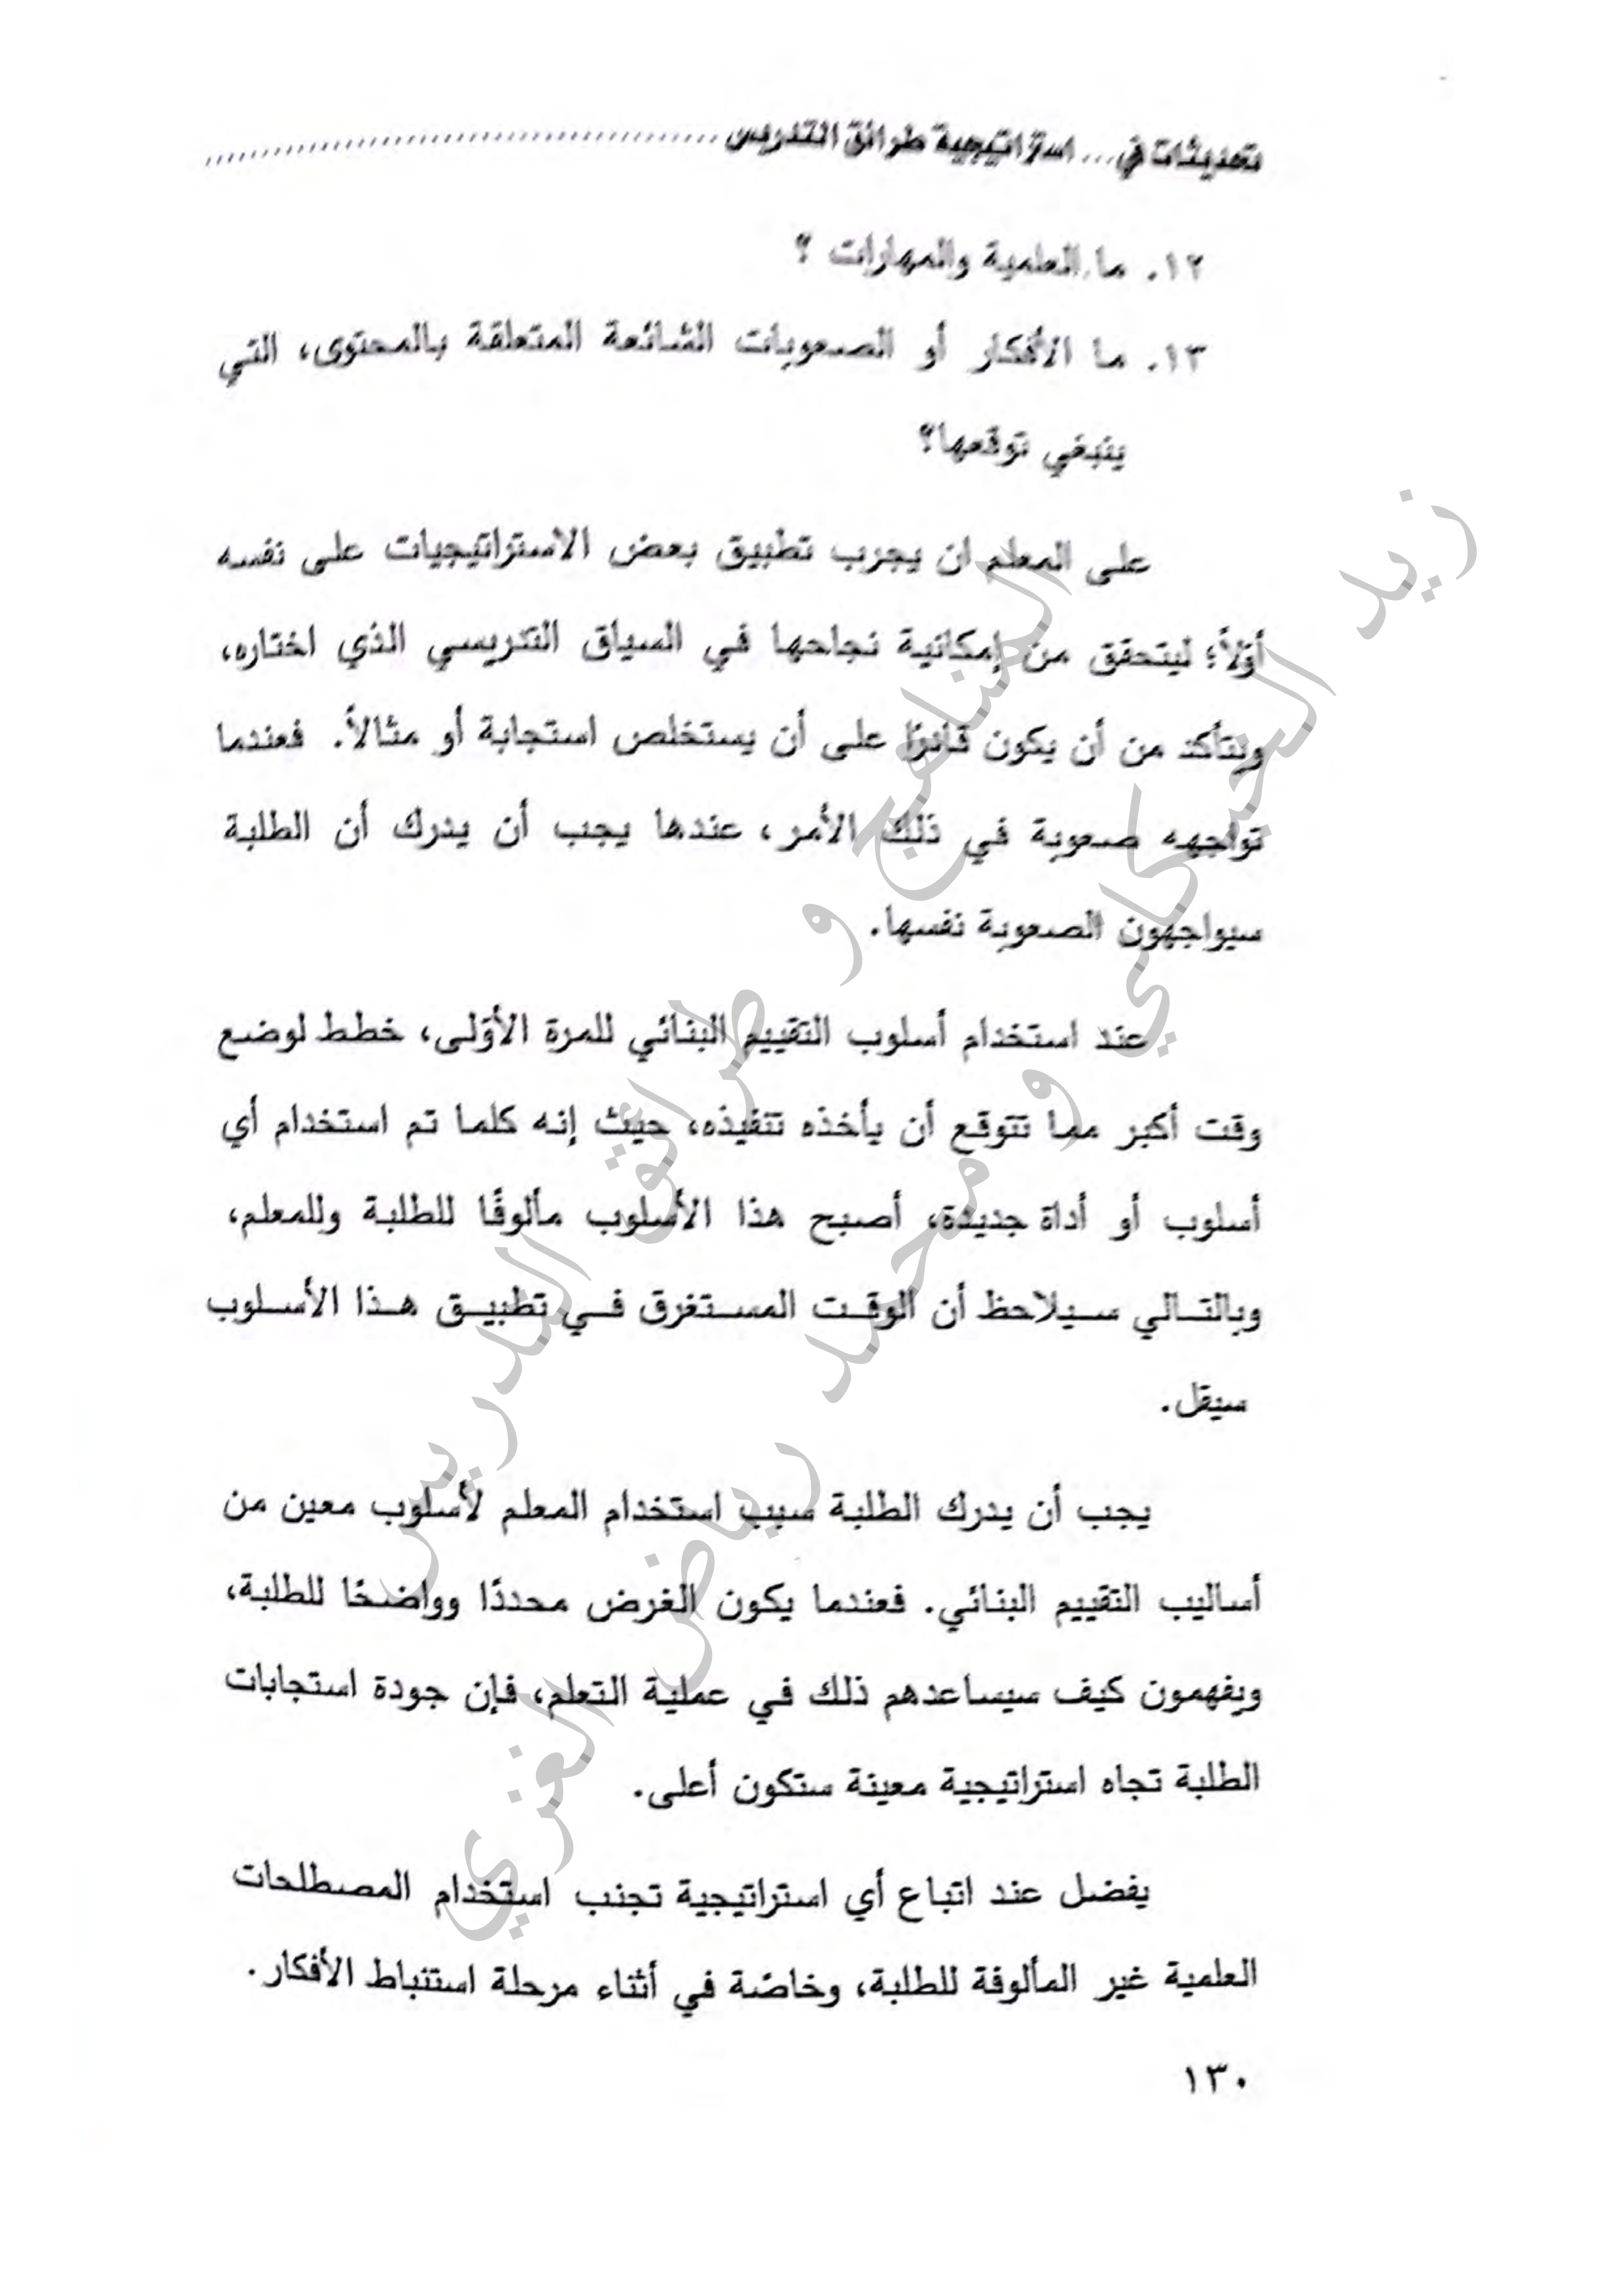 تحديثات في... استراتيجية طرائق التدريس
١٢. ما العلمية والمهارات ؟
١٣. ما الأفكار أو الصعوبات الشائعة المتعلقة بالمحتوى، التي
ينبغي توقعها؟
على المعلم ان يجرب تطبيق بعض الاستراتيجيات على نفسه
أوّلاً؛ ليتحقق من إمكانية نجاحها في السياق التدريسي الذي اختاره،
ويتأكد من أن يكون قادرًا على أن يستخلص استجابة أو مثالاً. فعندما
تواجهه صعوبة في ذلك الأمر، عندها يجب أن يدرك أن الطلبة
سيواجهون الصعوبة نفسها.
عند استخدام أسلوب التقييم البنائي للمرة الأوّلى، خطط لوضع
وقت أكبر مما تتوقع أن يأخذه تنفيذه، حيث إنه كلما تم استخدام أي
أسلوب أو أداة جديدة، أصبح هذا الأسلوب مألوفًا للطلبة وللمعلم،
وبالتالي سيلاحظ أن الوقت المستغرق في تطبيق هذا الأسلوب
سيقل.
يجب أن يدرك الطلبة سبب استخدام المعلم لأسلوب معين من
أساليب التقييم البنائي. فعندما يكون الغرض محددًا وواضحًا للطلبة،
ويفهمون كيف سيساعدهم ذلك في عملية التعلم، فإن جودة استجابات
الطلبة تجاه استراتيجية معينة ستكون أعلى.
يفضل عند اتباع أي استراتيجية تجنب استخدام المصطلحات
العلمية غير المألوفة للطلبة، وخاصّة في أثناء مرحلة استنباط الأفكار.
١٣٠
المناهج و طرائق التدريس
زيد الخيكاني و محمد رياض الغزي